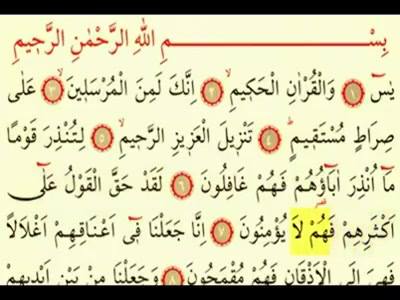 بِسْـــــــــمِ اللّٰهِ الرَّحْمٰنِ الرَّح۪يمِ
يٰسٓ ﴿١﴾ وَالْقُرْاٰنِ الْحَك۪يمِۙ ﴿٢﴾ اِنَّكَ لَمِنَ الْمُرْسَل۪ينَۙ ﴿٣﴾ عَلٰى
صِرَاطٍ مُسْتَق۪يمٍۜ ﴿٤﴾ تَنْز۪يلَ الْعَز۪يزِ الرَّح۪يمِۙ ﴿٥﴾ لِتُنْذِرَ قَوْمًا
مَٓا اُنْذِرَ اٰبَٓاؤُ۬هُمْ فَهُمْ غَافِلُونَ ﴿٦﴾ لَقَدْ حَقَّ الْقَوْلُ عَلٰٓى
اَكْثَرِهِمْ فَهُمْ لَا يُؤْمِنُونَ ﴿٧﴾ اِنَّا جَعَلْنَا ف۪ٓي اَعْنَاقِهِمْ اَغْلَالًا
فَهِيَ اِلَى الْاَذْقَانِ فَهُمْ مُقْمَحُونَ ﴿٨﴾ وَجَعَلْنَا مِنْ بَيْنِ اَيْد۪يهِمْ